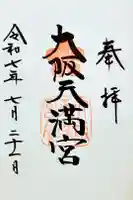 奉拝
大阪天満宮
令和七年七月二十一日